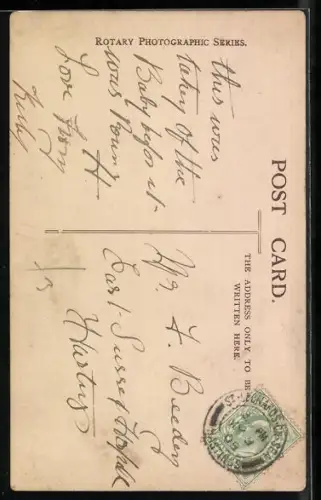 ROTARY PHOTOGRAPHIC SERIES.
POST CARD.
THE ADDRESS ONLY TO BE
WRITTEN HERE.
this was
taken of the
Baby before it
was Pound
H
Love from
Ruby
F. Beeden
East Sussex Hospital
Hastings